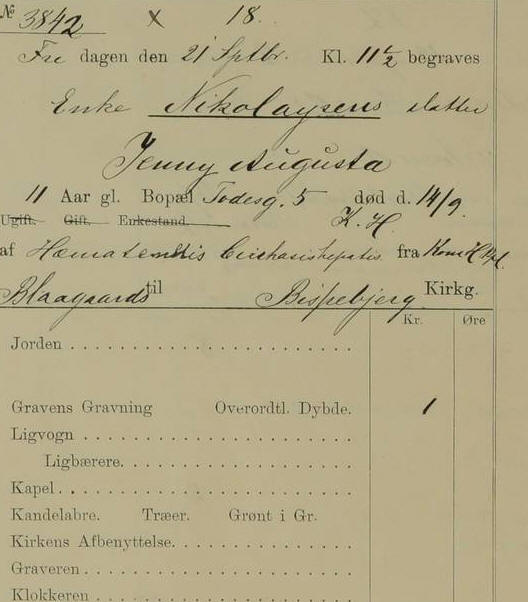 № 3842 x 18.
Fre dagen den 21 Sptbr. Kl. 11 1/2 begraves
Enke Nikolaysens datter
Jenny Augusta
11 Aar gl. Bopæl Todesg. 5 død d. 14/9.
Ugift. Gift. Enkestand. K. H.
af Hæmatemesis Cirrhosis hepatis fra Kom H.
Blaagaards til Bispebjerg Kirkg.
Kr. Øre
Jorden
Gravens Gravning Overordtl. Dybde. 1
Ligvogn
Ligbærere.
Kapel.
Kandelabre. Træer. Grønt i Gr.
Kirkens Afbenyttelse.
Graveren
Klokkeren